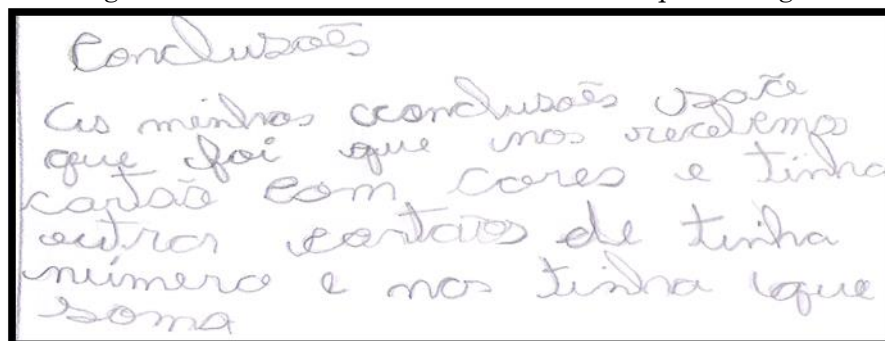 Conclusões
As minhas cconclusões
que foi que nos recebemos
cartão com cores e tinha
outros cartãos de tinha
número e nos tinha que
soma